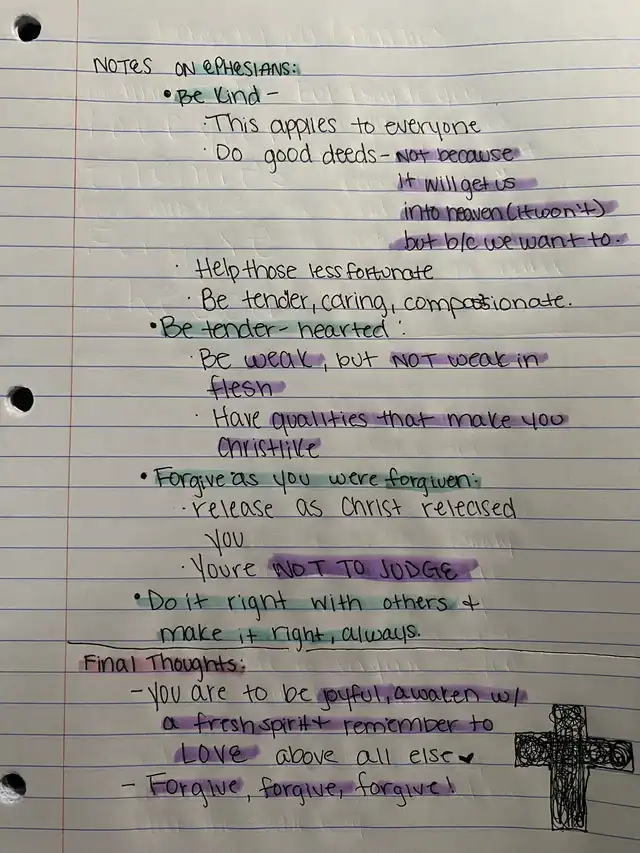 NOTES ON EPHESIANS:
• Be Kind -
· This applies to everyone
· Do good deeds - Not because
it will get us
into heaven (it won't)
but b/c we want to.
· Help those less fortunate
· Be tender, caring, compassionate.
• Be tender-hearted:
· Be weak, but NOT weak in
flesh
· Have qualities that make you
Christlike
• Forgive as you were forgiven:
· release as Christ released
you
· Youre NOT TO JUDGE
• Do it right with others +
make it right, always.
Final Thoughts:
- you are to be joyful, awaken w/
a fresh spirit + remember to
LOVE above all else ♥
- Forgive, forgive, forgive!